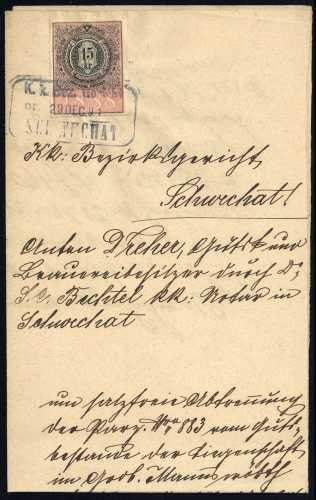 15
K. k. Bez.
29 DEC. 97
SCHWECHAT
Kk: Bezirksgericht
Schwechat!
Anton Dreher, Guts- und
Brauereibesitzer durch Dr
Bechtel kk: Notar in
Schwechat
um satzfreie Abtrennung
der Parz. Nro 883 vom Guts-
bestande der Liegenschaft
im Grdb. Mannswörth